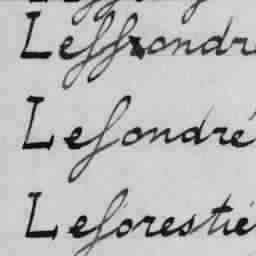 Leffrondr
Lefondré
Leforestié